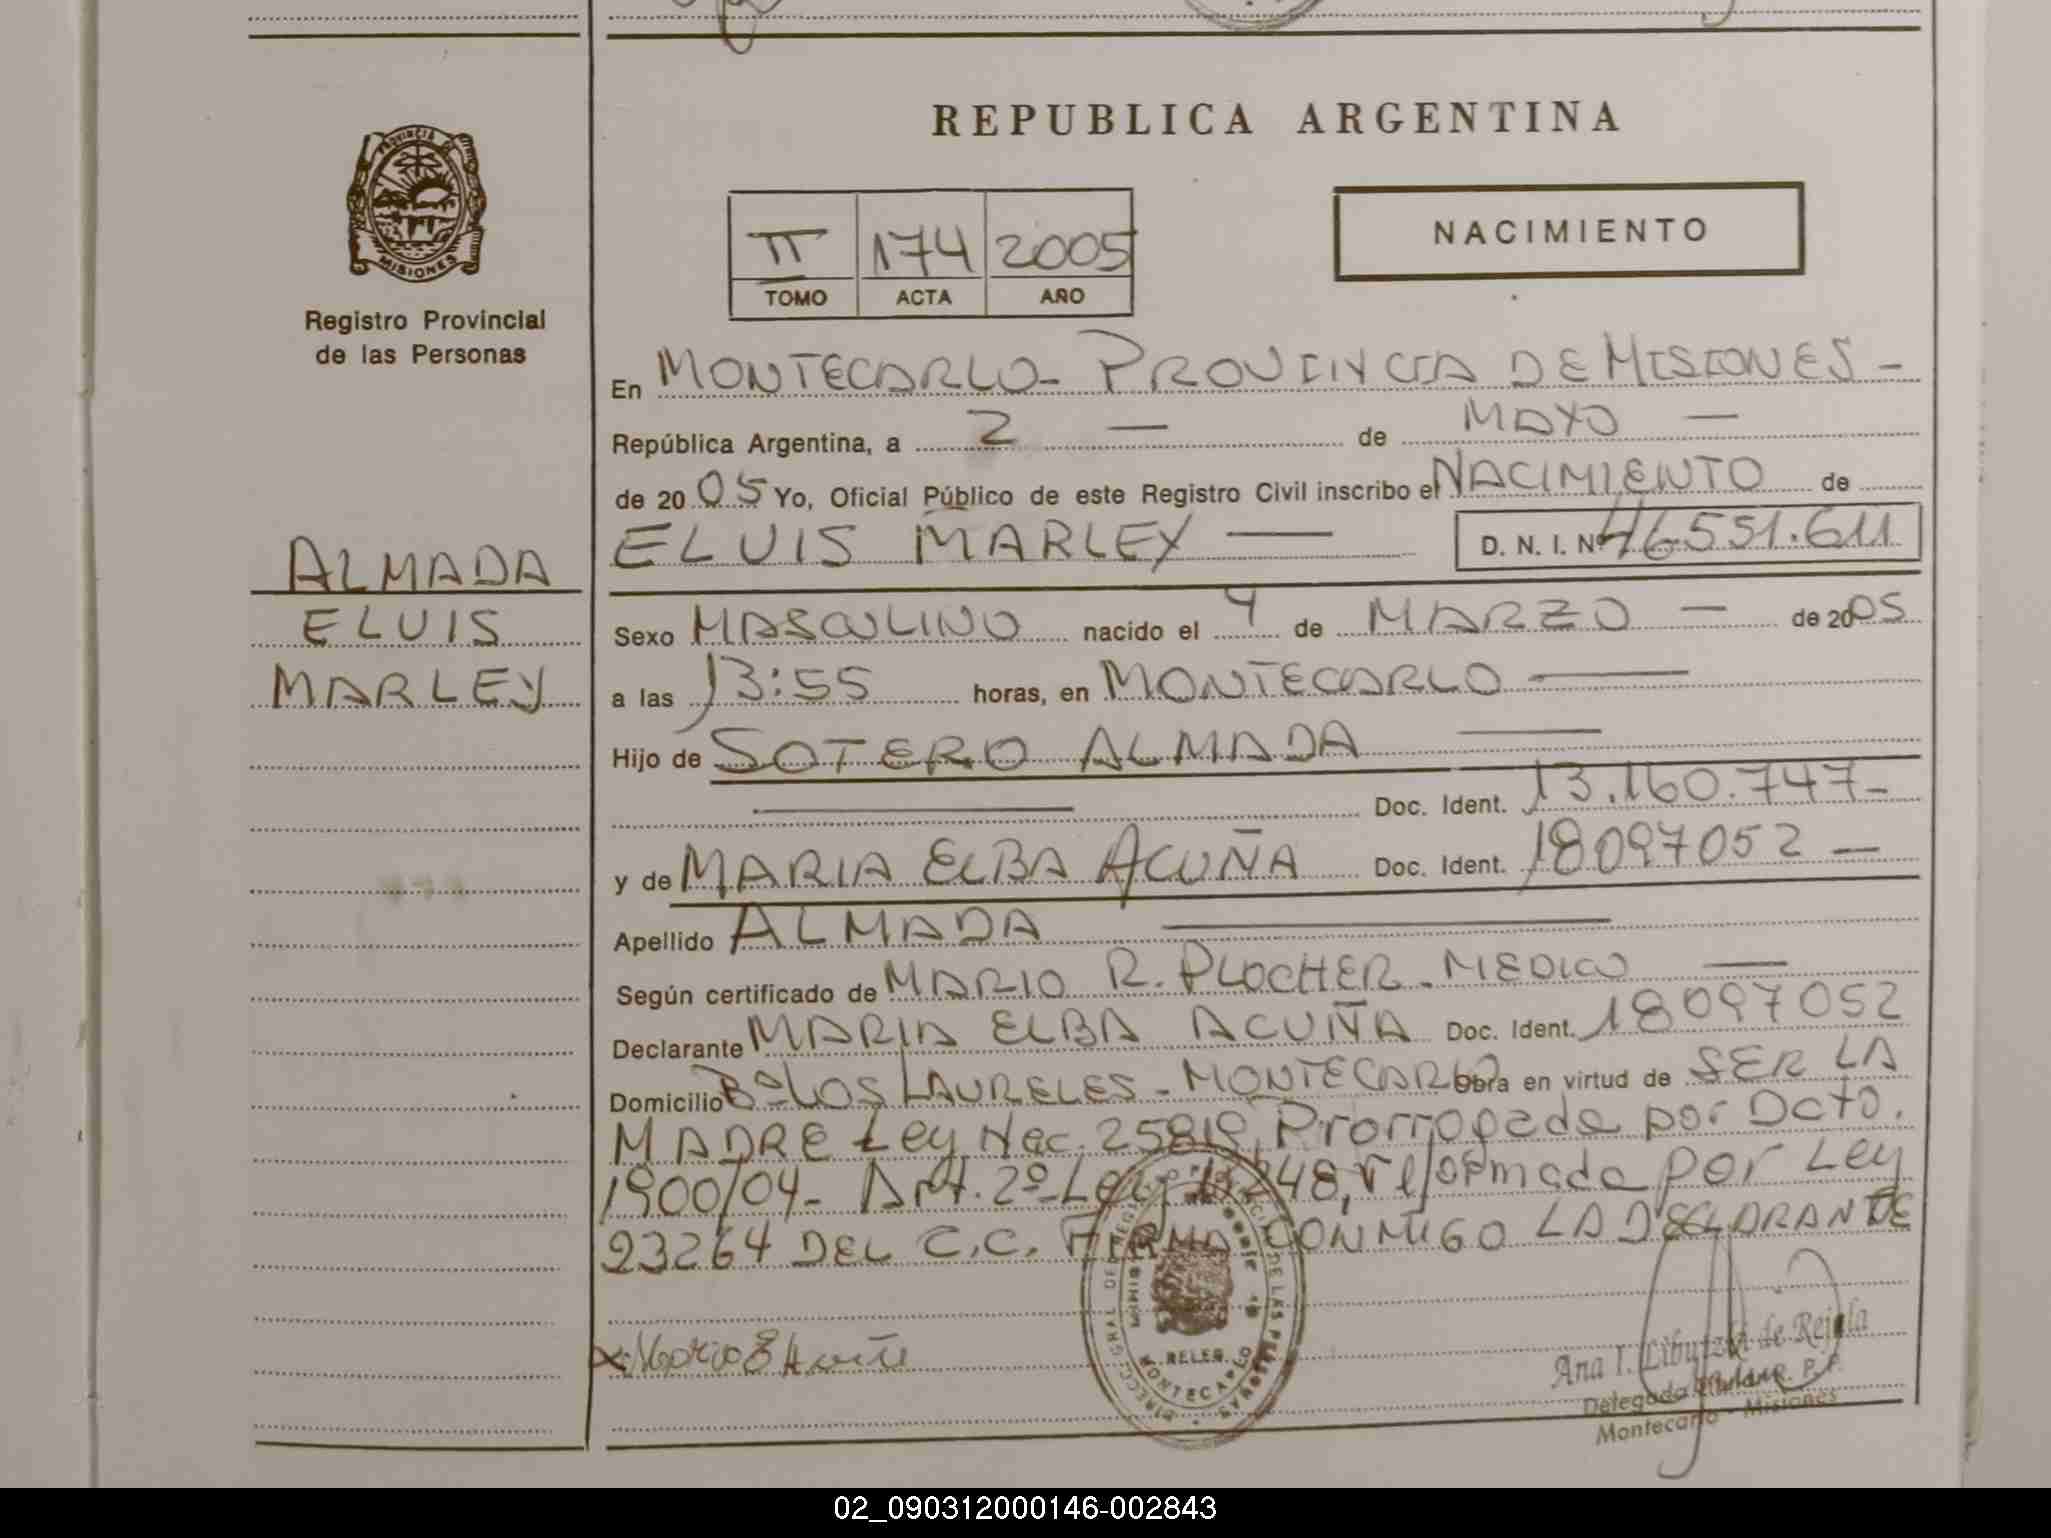 REPUBLICA ARGENTINA
PROVINCIA DE
MISIONES
Registro Provincial
de las Personas
II 174 2005
TOMO ACTA AÑO
NACIMIENTO
En MONTECARLO - PROVINCIA DE MISIONES -
República Argentina, a 2 — de MAYO —
de 20 05 Yo, Oficial Público de este Registro Civil inscribo el NACIMIENTO de
ELUIS MARLEY — D. N. I. Nº 46.551.611
ALMADA
ELUIS
MARLEY
Sexo MASCULINO nacido el 4 de MARZO — de 2005
a las 13:55 horas, en MONTECARLO —
Hijo de SOTERO ALMADA —
— Doc. Ident. 13.160.747-
y de MARIA ELBA ACUÑA Doc. Ident. 18097052 —
Apellido ALMADA —
Según certificado de MARIO R. PLOCHER - MEDICO —
Declarante MARIA ELBA ACUÑA Doc. Ident. 18097052
Domicilio Bº LOS LAURELES - MONTECARLO Obra en virtud de SER LA
MADRE Ley Nac. 25819, Prorrogada por Dcto.
1900/04- Art. 2º Ley 48, reformada por Ley
23264 DEL C.C. FIRMA CONMIGO LA DECLARANTE
MONTECARLO
Ana I. de Rejala
Delegada Titular R. P. P.
Montecarlo - Misiones
02_090312000146-002843